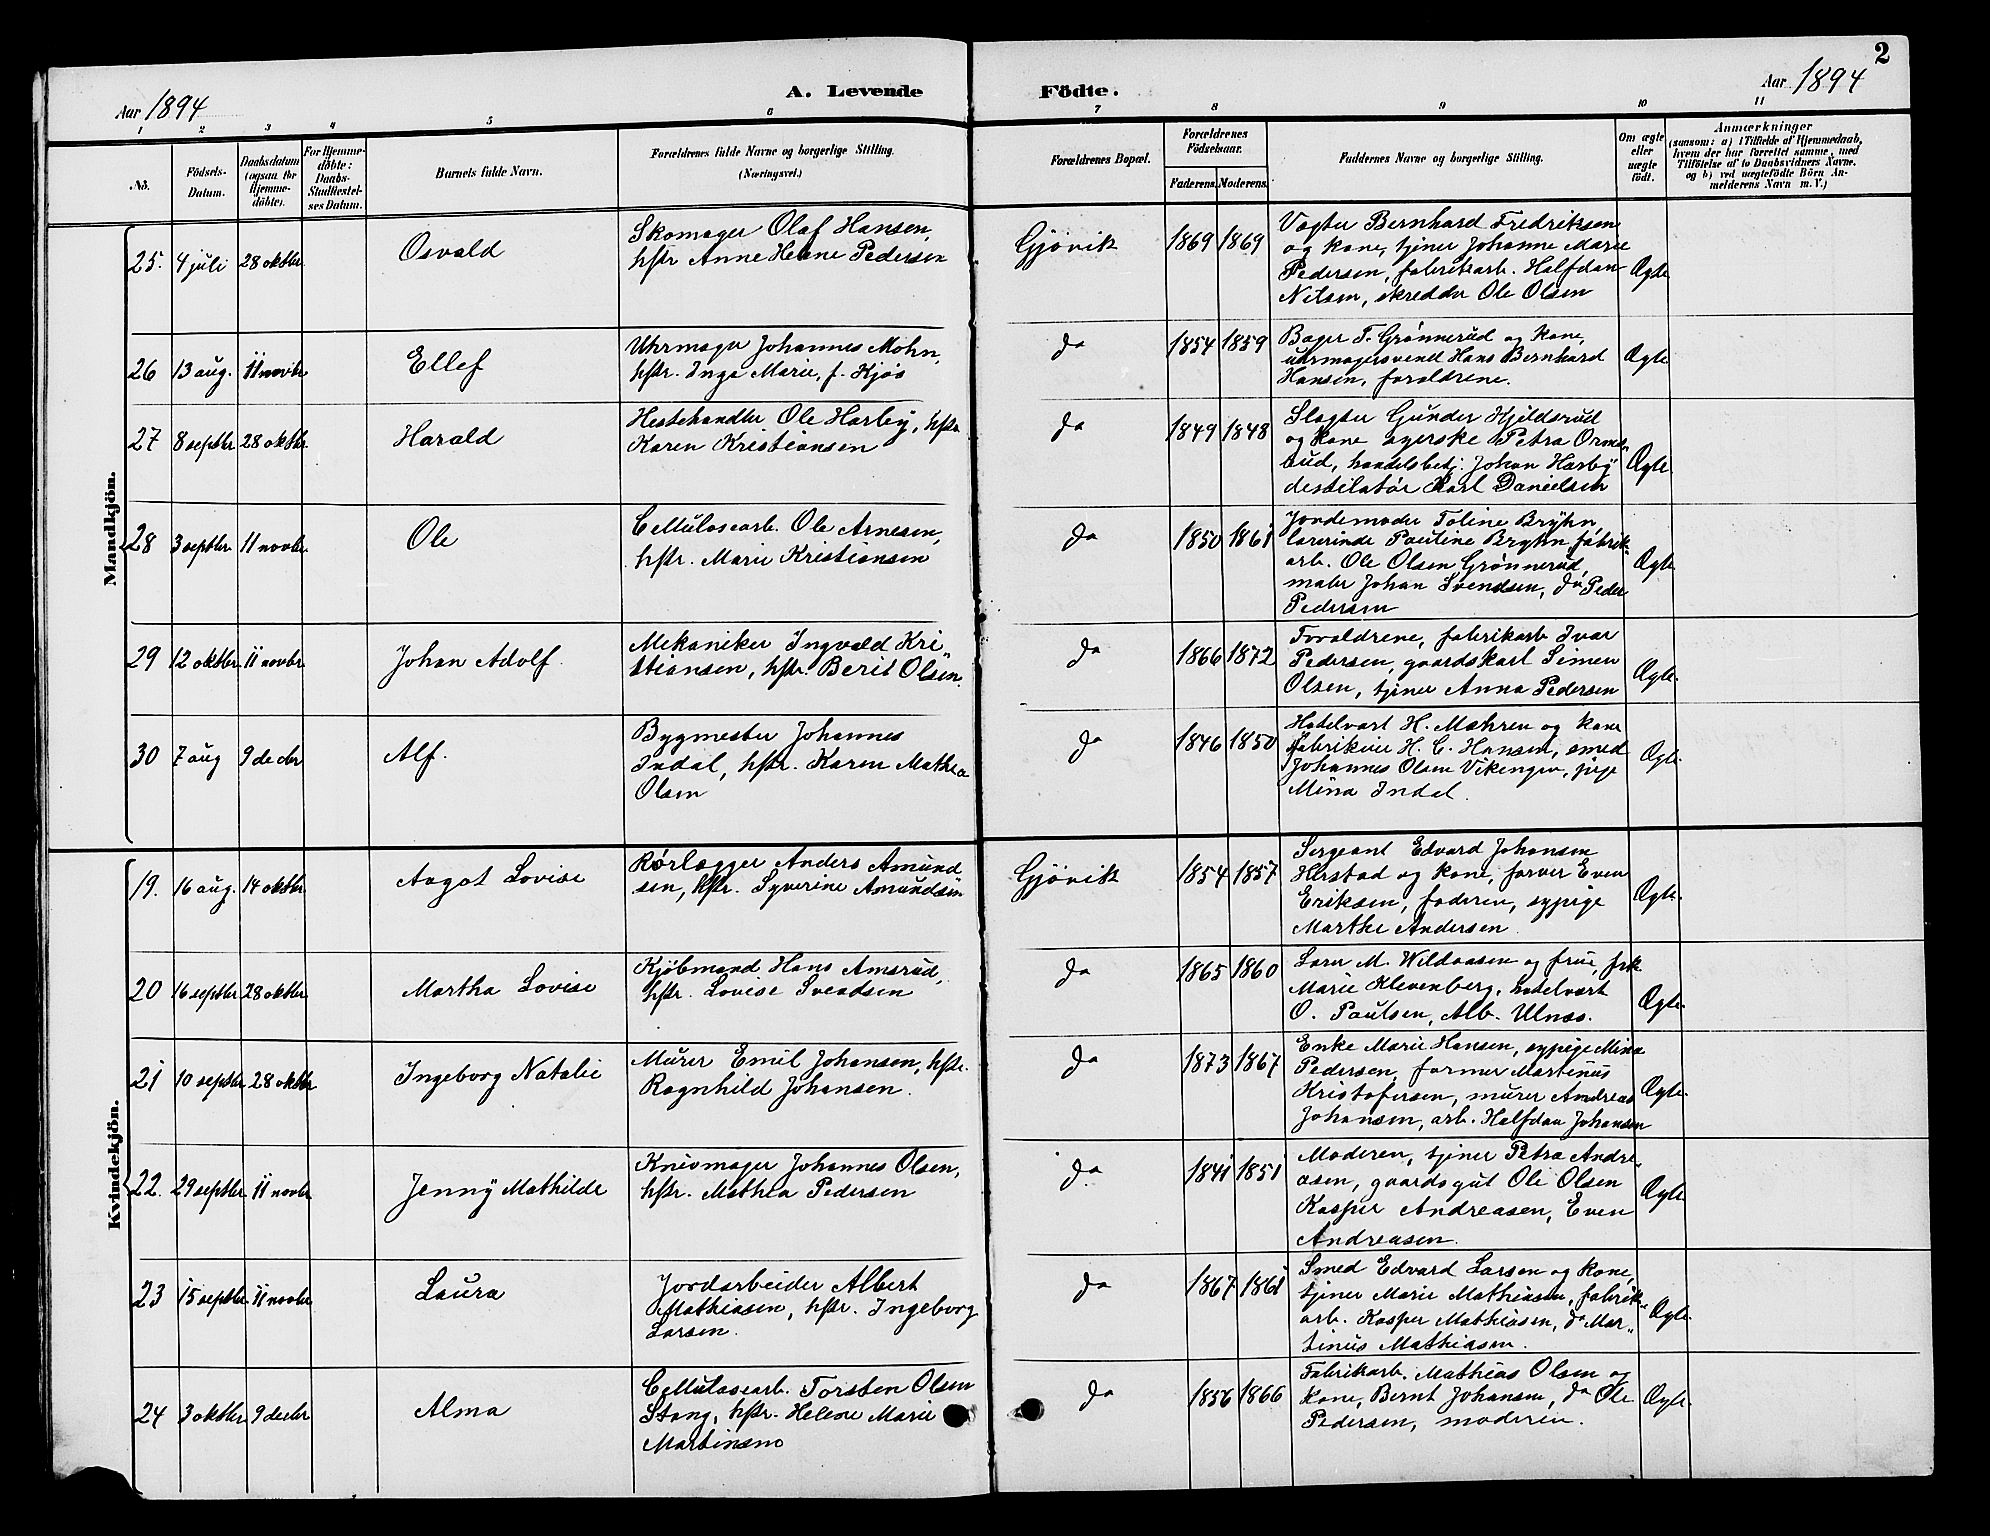 2
Aar 1894
A. Levende
Födte.
Aar 1894
1 2 3 4 5 6 7 8 9 10 11
No.
Födsels-
Datum.
Daabsdatum
(ogsaa for
Hjemme-
döbte).
For Hjemme-
döbte:
Daabs-
Stadfæstel-
ses Datum.
Barnets fulde Navn.
Forældrenes fulde Navne og borgerlige Stilling.
(Næringsvei.)
Forældrenes Bopæl.
Forældrenes
Födselsaar.
Faderens.
Moderens.
Faddernes Navne og borgerlige Stilling.
Om ægte
eller
uægte
födt.
Anmærkninger
(saasom: a) i Tilfælde af Hjemmedaab,
hvem der har forrettet samme, med
Tilföielse af to Daabsvidners Navne.
og b) ved uægtefödte Börn An-
melderens Navn m. V.)
Mandkjön.
25. 4 juli 28 oktbr Osvald
Skomager Olaf Hansen,
hstr Anne Helene Pedersen
Gjövik 1869 1869
Vogter Bernhard Fredriksen
og kone, tjener Johanne Marie
Pedersen, fabrikarb. Halfdan
Nilsen, skredder Ole Olsen
Ægte
26 13 aug. 11 novbr Ellef
Uhrmager Johannes Mohn,
hstr. Inga Marie, f. Kjøs
do 1854 1859
Bager T. Grønnerud og kone,
uhrmagersvend Hans Bernhard
Hansen, forældrene.
Ægte
27 8 septbr 28 oktbr. Harald
Hestehandler Ole Harby, hstr
Karen Kristiansen
do 1849 1848
Slagter Gunder Hjeldsrud
og kone
bud, handelsbetj. Johan Harby
destilatør Karl Danielsen
Ægte
28 3 septbr. 11 novbr. Ole
Cellulosearb. Ole Arnesen,
hstr. Marie Kristiansen
do 1850 1861
Jordemoder Toline Bryhn,
lærerinde Pauline Bryhn, fabrik-
arb. Ole Olsen Grønnerud,
maler Johan Svendsen, do Peder
Pedersen
Ægte
29 12 oktbr. 11 novbr. Johan Adolf.
Mekaniker Ingvald Kri-
stiansen, hstr. Berit Olsen.
do 1866 1872
Forældrene, fabrikarb Ivar
Pedersen, gaardskarl Simen
Olsen, tjener Anna Pedersen
Ægte.
30 7 aug 9 decbr Alf.
Bygmester Johannes
Indal, hstr. Karen Mathea
Olsen
do 1846 1850
Hotelvært H. Mæhren og kone
fabrikeier H. C. Hansen, smed
Johannes Olsen Vikengen, pige
Mina Indal.
Ægte.
Kvindekjön.
19. 16 aug. 14 oktbr Aagot Lovise
Rørlægger Anders Amund
sen, hstr. Syverine Amundsen
Gjövik 1854 1857
Sergeant Edvard Johansen
Hirstad og kone, farver Even
Eriksen, faderen, sypige
Marthe Andersen
Ægte.
20 16 septbr 28 oktbr Martha Lovise
Kjöbmand Hans Amsrud,
hstr. Lovise Svendsen
do 1865 1860
M. Wildaasen og frue, frk
Marie Klevenberg, hotelvært
O. Paulsen, Alb. Ulnæs.
Ægte.
21 10 septbr 28 oktbr Ingeborg Natalie
Murer Emil Johansen, hstr.
Ragnhild Johansen.
do 1873 1867
Enke Marie Hansen, sypige Mina
Pedersen, former Martinus
Kristofersen, murer Andreas
Johansen, arb. Halfdan Johansen
Ægte.
22. 29 septbr. 11 novbr Jenny Mathilde
Knivmager Johannes Olsen,
hstr. Mathea Pedersen
do. 1841 1851
Moderen, tjener Petra Andre-
asen, gaardsgut Ole Olsen
Kasper Andreasen, Even
Andreasen.
Ægte
23 15 septbr. 11 novbr Laura
Jordarbeider Albert
Mathiasen, hstr. Ingeborg
Larsen.
do 1867 1861
Smed Edvard Larsen og kone,
tjener Marie Mathiasen, fabrik-
arb. Kasper Mathiasen, do Mar-
tinus Mathiasen.
Ægte.
24 3 oktbr 9 decbr Alma
Cellulosearb. Torsten Olsen
Stang, hstr. Helene Marie
Martinsen
do 1856 1866
Fabrikarb. Mathias Olsen og
kone, Bernt Johansen, do Ole
Pedersen, moderen.
Ægte.